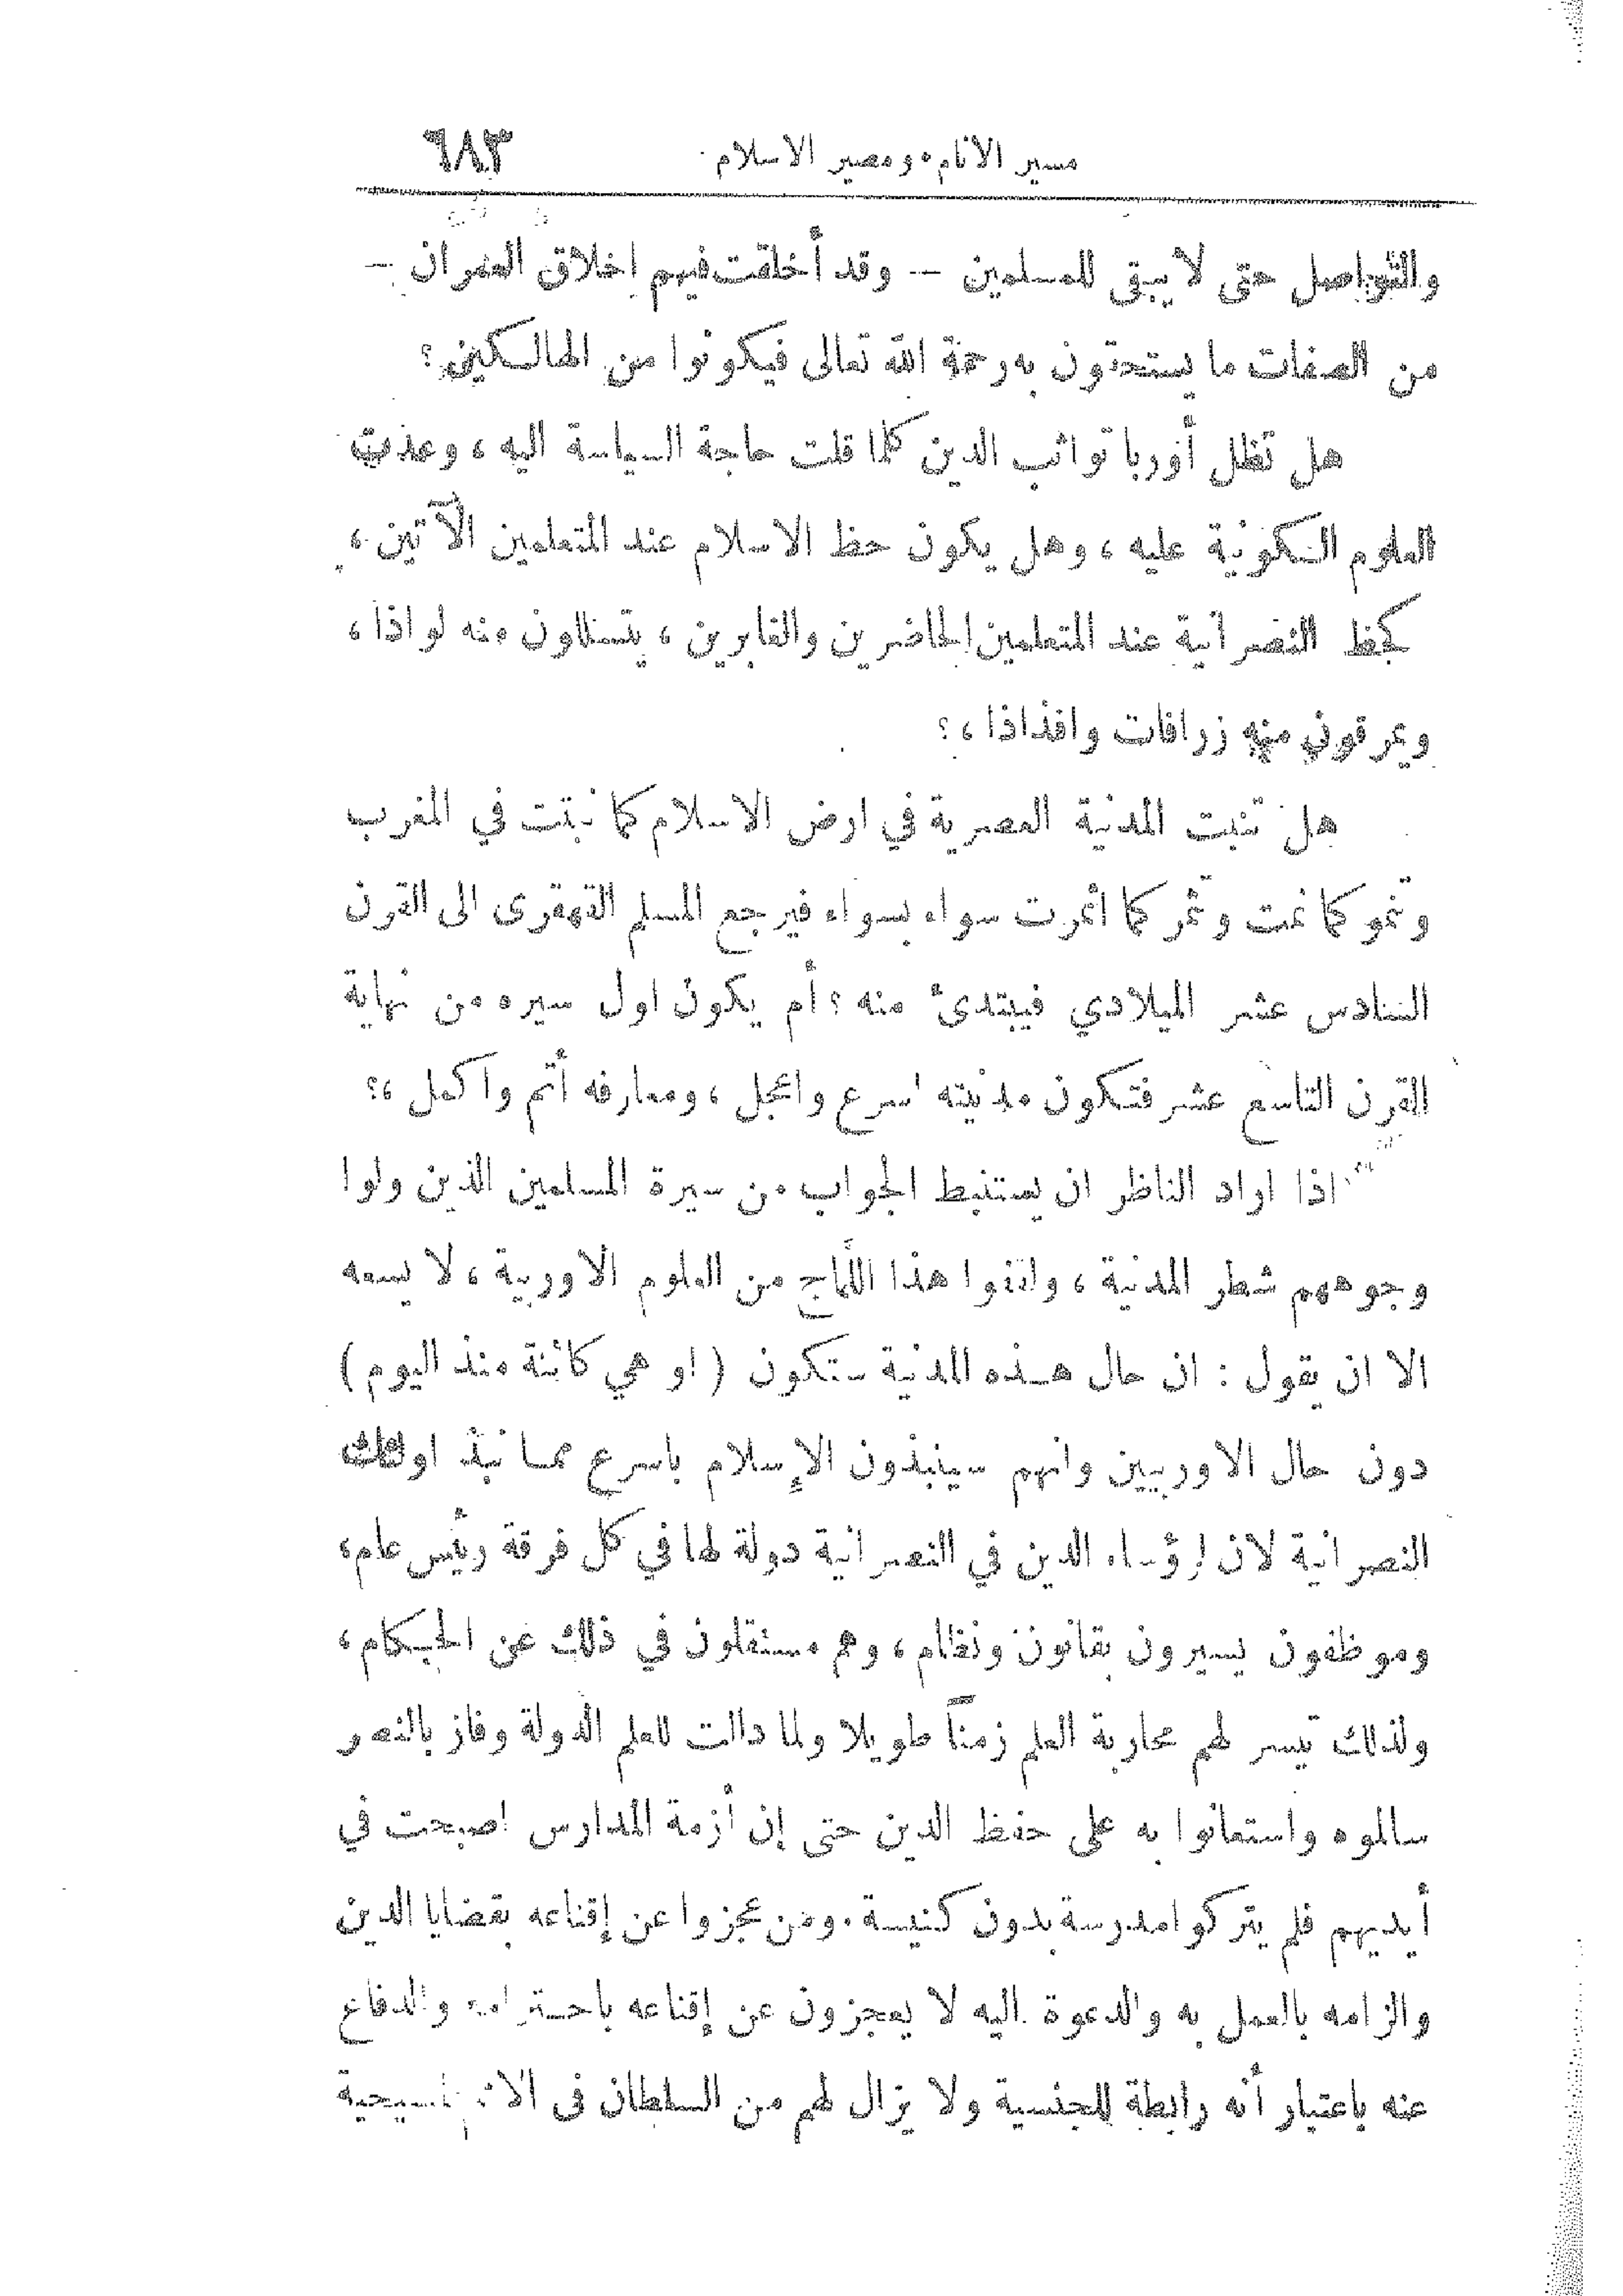 مسير الانام ومصير الاسلام ٦٨٣
والتواصل حتى لا يبقى للمسلمين — وقد أخلقت فيهم اخلاق العمران —
من الصفات ما يستحقون به رحمة الله تعالى فيكونوا من الهالكين؟
هل تظل أوربا تواثب الدين كلما قلت حاجة السياسة اليه ، وعدت
العلوم الكونية عليه ، وهل يكون حظ الاسلام عند المتعلمين الآتين ،
كحظ النصرانية عند المتعلمين الحاضرين والغابرين ، يتسللون منه لواذا ،
ويمرقون منه زرافات وافذاذا ،؟
هل تنبت المدنية العصرية في ارض الاسلام كما نبتت في المغرب
وتنمو كما نمت وتثمر كما اثمرت سواء بسواء فيرجع المسلم القهقرى الى القرن
السادس عشر الميلادي فيبتدئ منه ؟ أم يكون اول سيره من نهاية
القرن التاسع عشر فتكون مدنيته اسرع واعجل ، ومعارفه أتم واكمل ،؟
اذا اراد الناظر ان يستنبط الجواب من سيرة المسلمين الذين ولوا
وجوههم شطر المدنية ، هذا اللماج من العلوم الاوربية ، لا يسعه
الا ان يقول : ان حال هذه المدنية ستكون ( او هي كائنة منذ اليوم )
دون حال الاوربيين وانهم سينبذون الإسلام باسرع مما نبذ اولئك
النصرانية لان رؤساء الدين في النصرانية دولة لها في كل فرقة رئيس عام ،
وموظفون يسيرون بقانون ونظام ، وهم مستقلون في ذلك عن الحكام ،
ولذلك تيسر لهم محاربة العلم زمناً طويلا ولما دالت للعلم الدولة وفاز بالنصر
سالموه واستعانوا به على حفظ الدين حتى إن أزمة المدارس اصبحت في
أيديهم فلم يتركوا مدرسة بدون كنيسة . ومن عجزوا عن إقناعه بقضايا الدين
والزامه بالعمل به والدعوة اليه لا يعجزون عن إقناعه باحترامه والدفاع
عنه باعتبار أنه رابطة للجنسية ولا يزال لهم من السلطان في